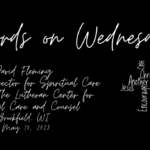 ords on Wednesda
David Fleming
ector for Spiritual Care
The Lutheran Center for
l Care and Counsel
Brookfield, WI
May 10, 2023
One
Another
Jesus
Encourage